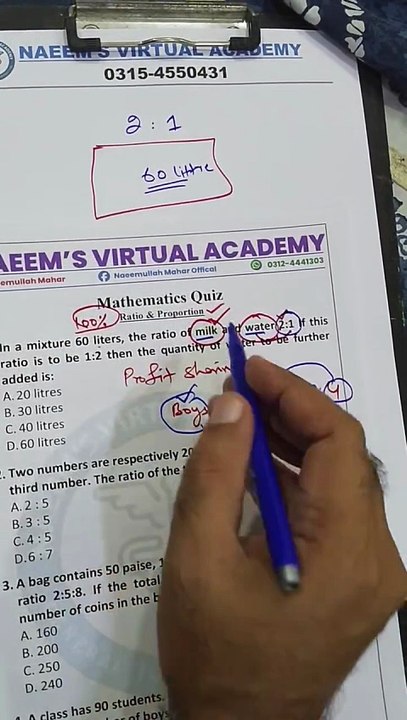 NAEEM'S VIRTUAL ACADEMY
0315-4550431
2 : 1
60 littre
AEEM'S VIRTUAL ACADEMY
llah Mahar
Naeemullah Mahar Offical
0312-4441303
Mathematics Quiz
100%
Ratio & Proportion
In a mixture 60 liters, the ratio of milk and water 2:1 If this
ratio is to be 1:2 then the quantity of water to be further
added is:
Profit
A. 20 litres
Boys
4
B. 30 litres
C. 40 litres
D. 60 litres
2. Two numbers are respectively 20
third number. The ratio of the
A. 2 : 5
B. 3 : 5
C. 4 : 5
D. 6 : 7
3. A bag contains 50 paise, 1
ratio 2:5:8. If the total
number of coins in the b
A. 160
B. 200
C. 250
D. 240
A class has 90 students.
of boys